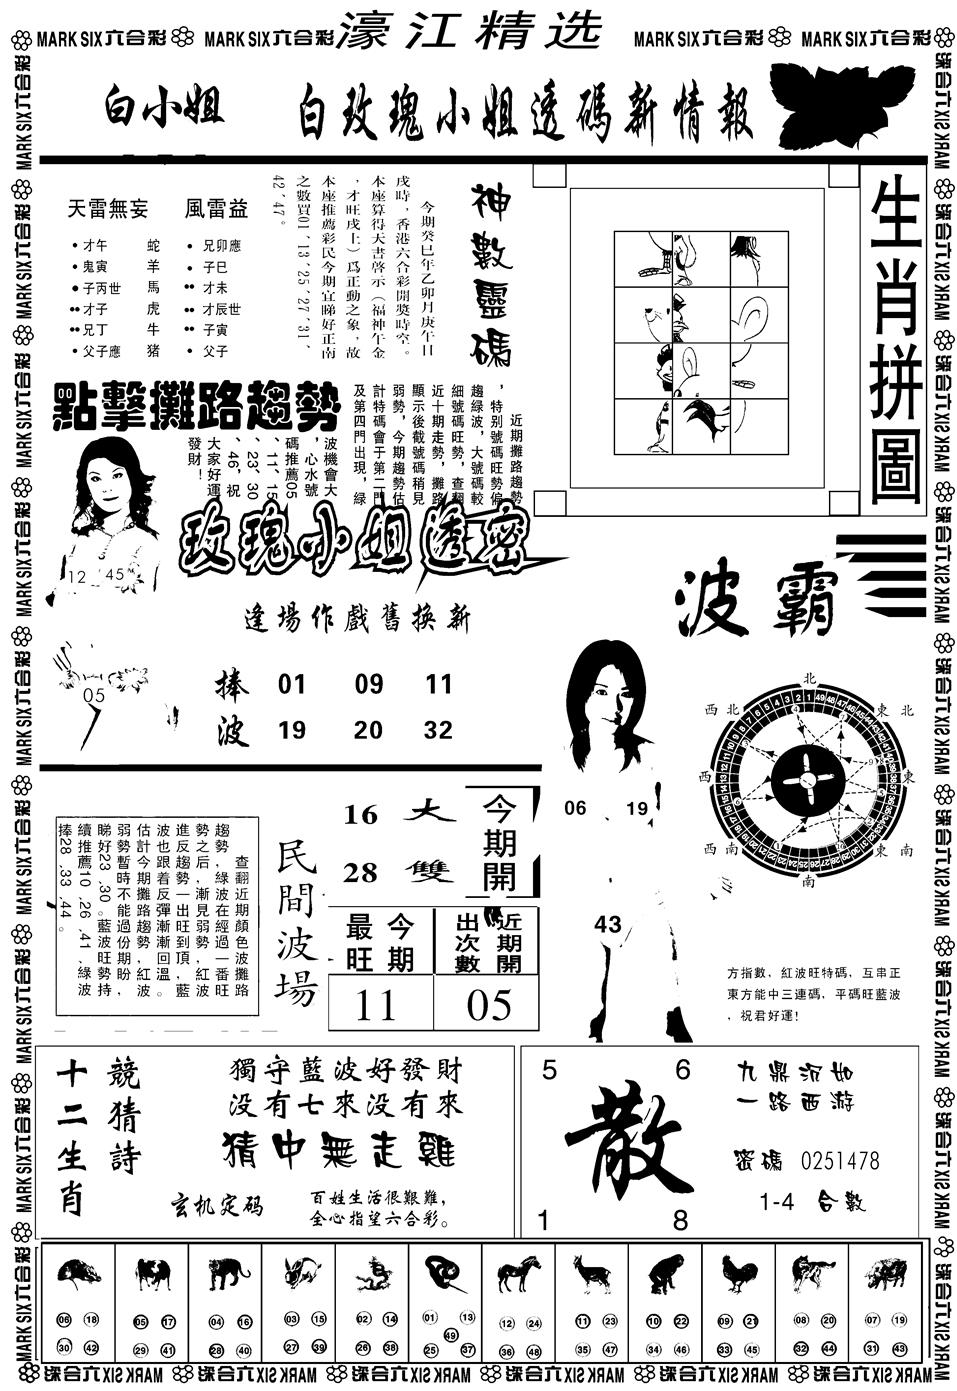 MARK SIX六合彩 MARK SIX六合彩 濠江精选 MARK SIX六合彩 MARK SIX六合彩
白小姐 白玫瑰小姐透碼新情報
天雷無妄 風雷益
才午 蛇 兄卯應
鬼寅 羊 子巳
子丙世 馬 才未
才子 虎 才辰世
兄丁 牛 子寅
父子應 猪 父子
神數靈碼
今期癸巳年乙卯月庚午日
戌時，香港六合彩開獎時空。
本座算得天書啓示（福神午金
，才旺戌土）爲正動之象，故
本座推薦彩民今期宜睇好正南
之數買01、13、25、27、31、
42、47。
生肖拼圖
點擊攤路趨勢
近期攤路趨勢
，特别號碼旺勢偏
趨綠波，大號碼較
細號碼旺勢，查翻
近十期走勢，攤路
顯示後截號碼稍見
弱勢，今期趨勢估
計特碼會于第二門
及第四門出現，綠
波機會大
，心水號
碼推薦05
、11、15
、23、30
、46，祝
大家好運
發財！
12 45
05
玫瑰小姐透密
逢場作戲舊换新
捧波
01 09 11
19 20 32
波霸
06 19
43
北
西北 東北
西 東
西南 東南
南
方指數，紅波旺特碼，互串正
東方能中三連碼，平碼旺藍波
，祝君好運!
查翻近期顏色波攤路
趨勢，綠波在經過一番旺
勢之后，漸見弱勢，紅波
進反趨勢一出旺到頂，藍
波也跟着反彈漸漸回溫。
估計今期攤路趨勢，紅波
弱勢暫時不能過份期盼，
睇好23、30。藍波旺勢持
續推薦10、26、41，綠波
捧28、33、44。
民間波場
16 大
28 雙
今期開
今期最旺
近期開出次數
11 05
競猜詩
十二生肖
獨守藍波好發財
没有七來没有來
猜中無走雞
玄机定码
百姓生活很艱難，
全心指望六合彩。
5 6
散
1 8
九鼎沉如
一路西游
密碼 0251478
1-4 合數
06 18 05 17 04 16 03 15 02 14 01 13 12 24 11 23 10 22 09 21 08 20 07 19
49
30 42 29 41 28 40 27 39 26 38 25 37 36 48 35 47 34 46 33 45 32 44 31 43
MARK SIX六合彩 MARK SIX六合彩 MARK SIX六合彩 MARK SIX六合彩 MARK SIX六合彩 MARK SIX六合彩